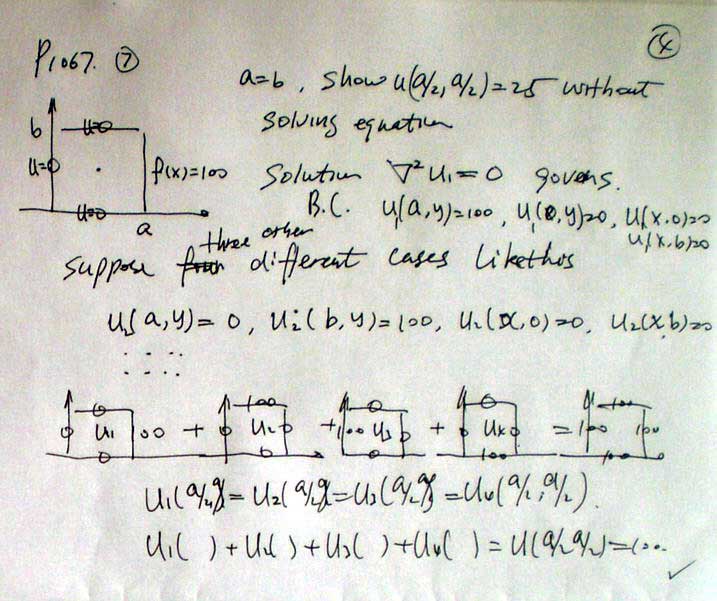 P1067. ⑦
④
a=b, show u(a/2, a/2)=25 without
solving equation
b u=0
u=0 f(x)=100
u=0
a
Solution ∇²u₁=0 govens.
B.C. u₁(a,y)=100, u₁(0,y)=0, u₁(x,0)=0
u₁(x,b)=0
three other
suppose four different cases like this
u₂(a,y)=0, u₂(b,y)=100, u₂(x,0)=0, u₂(x,b)=0
0 0 u₁ 100 0 + 100 0 u₂ 0 0 + 0 100 u₃ 0 0 + 0 0 u₄ 0 100 = 100 100 100 100
u₁(a/2,a/2)=u₂(a/2,a/2)=u₃(a/2,a/2)=u₄(a/2,a/2).
u₁( )+u₂( )+u₃( )+u₄( )=u(a/2,a/2)=100.